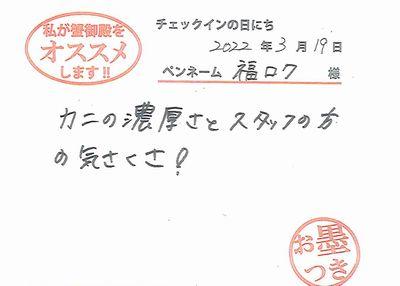 私が蟹御殿を
オススメ
します!!
チェックインの日にち
2022年3月19日
ペンネーム 福ロク 様
カニの濃厚さとスタッフの方
の気さくさ!
お墨
つき